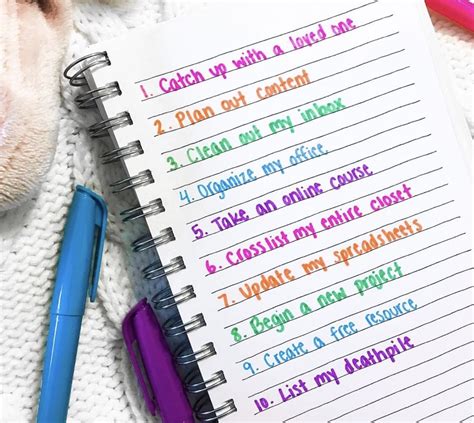 1. Catch up with a loved one
2. Plan out content
3. Clean out my inbox
4. Organize my office
5. Take an online course
6. Crosslist my entire closet
7. Update my spreadsheets
8. Begin a new project
9. Create a free resource
10. List my deathpile